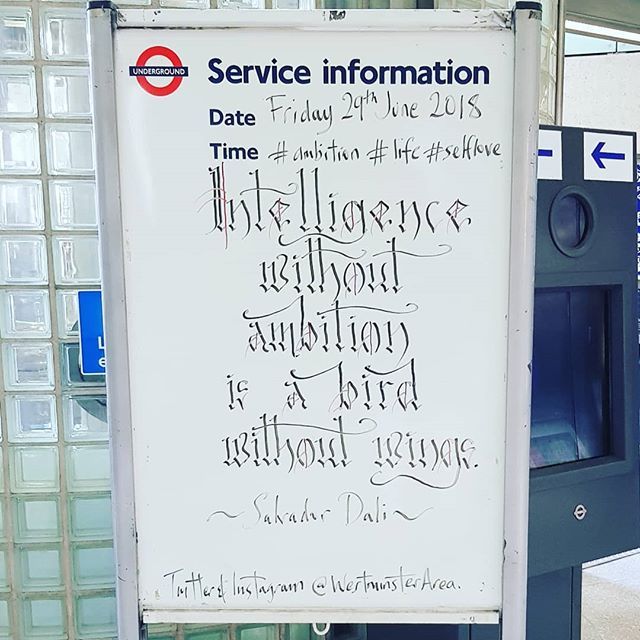 UNDERGROUND
Service information
Date Friday 29th June 2018
Time #ambition #life #selflove
Intelligence
without
ambition
is a bird
without wings.
~ Salvador Dali ~
Twitter & Instagram @WestminsterArea.